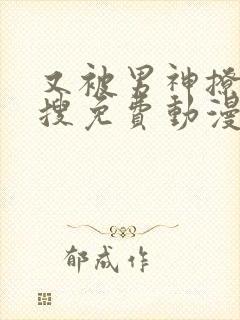 又被男神撩
搜免費動漫
郁成作